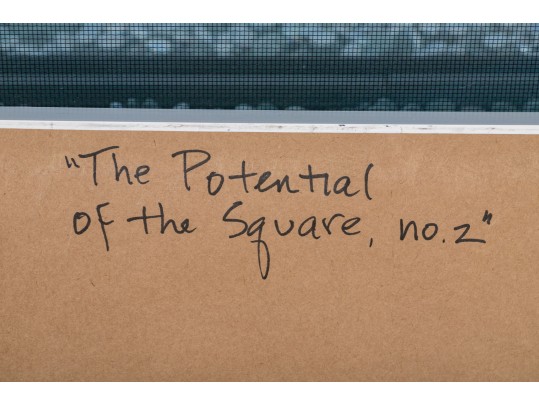 "The Potential
of the Square, no. 2"